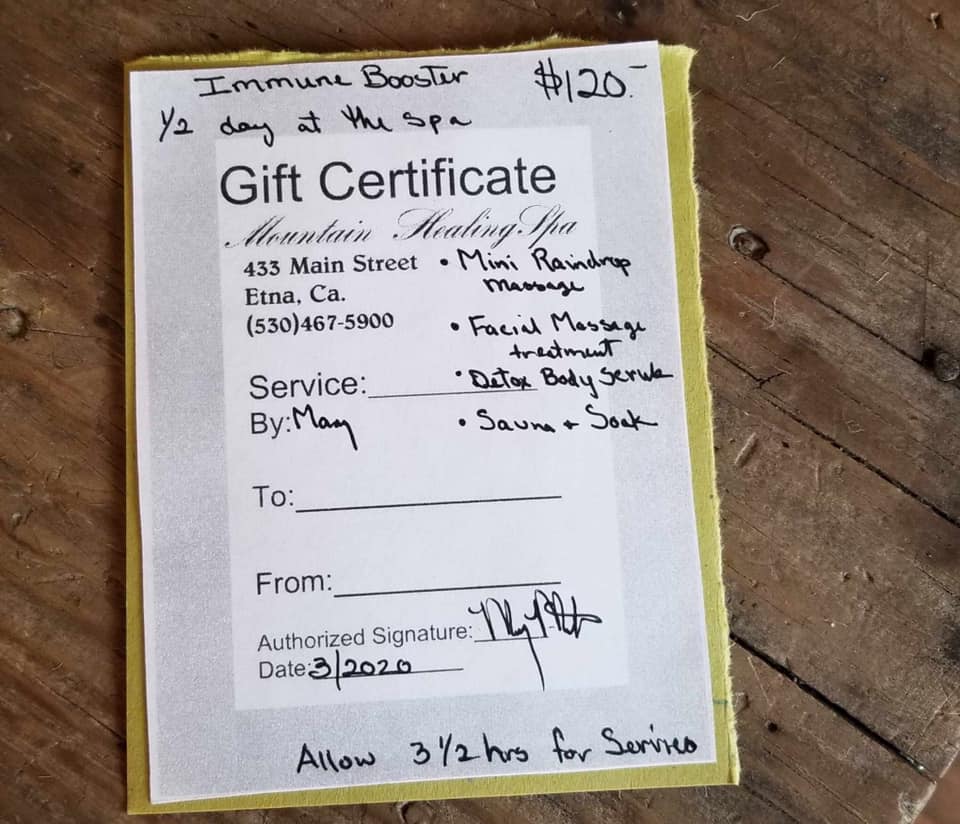 Immune Booster $120.-
1/2 day at the spa
Gift Certificate
Mountain Healing Spa
433 Main Street
Etna, Ca.
(530)467-5900
• Mini Raindrop
massage
• Facial Massage
treatment
• Detox Body Scrub
• Sauna + Soak
Service:
By: Mary
To:
From:
Authorized Signature:
Date: 3/2020
Allow 3 1/2 hrs for Services